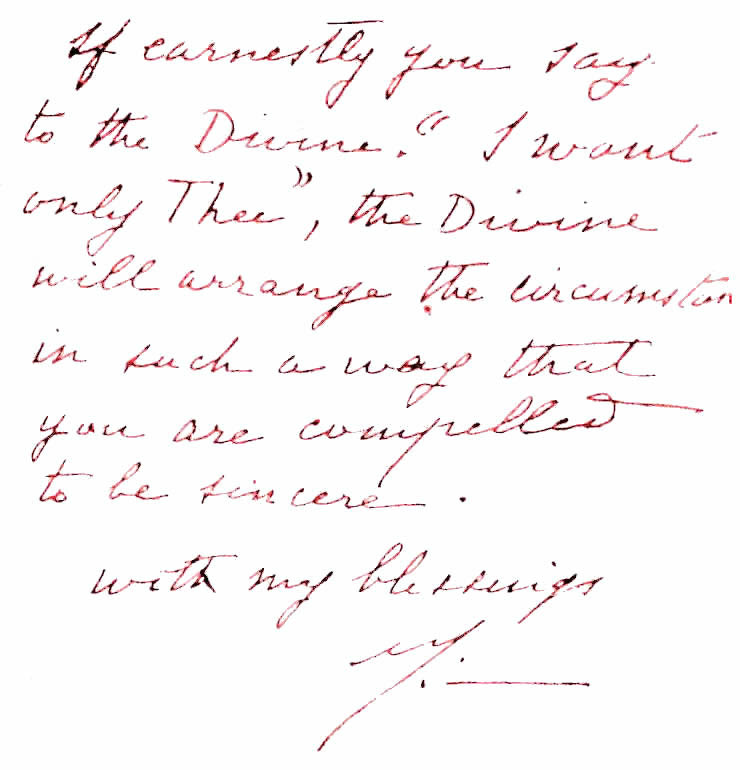 If earnestly you say
to the Divine. “ I want
only Thee”, the Divine
will arrange the circumstan
in such a way that
you are compelled
to be sincere .
with my blessings
M.